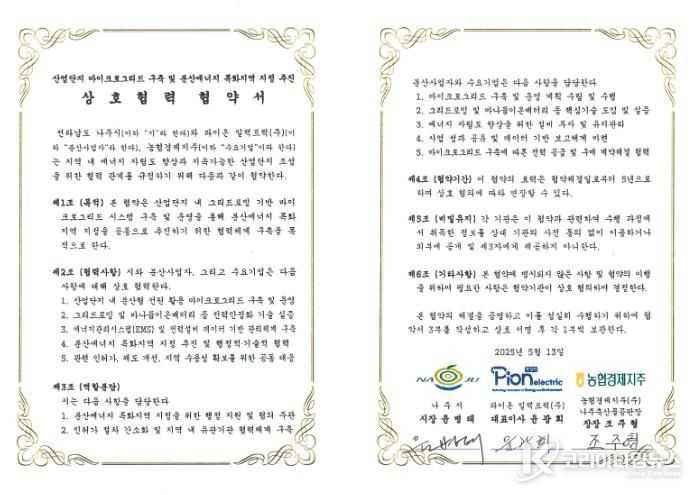 산업단지 마이크로그리드 구축 및 분산에너지 특화지역 지정 추진
상 호 협 력 협 약 서
전라남도 나주시(이하 "시"라 한다)와 파이온 일렉트릭(주)(이
하 "분산사업자"라 한다), 농협경제지주(이하 "수요기업"이라 한다)
는 지역 내 에너지 자립도 향상과 지속가능한 산업단지 조성
을 위한 협력 관계를 규정하기 위해 다음과 같이 협약한다.
제1조 (목적) 본 협약은 산업단지 내 그리드포밍 기반 마이
크로그리드 시스템 구축 및 운영을 통해 분산에너지 특화
지역 지정을 공동으로 추진하기 위한 협력체계 구축을 목
적으로 한다.
제2조 (협력사항) 시와 분산사업자, 그리고 수요기업은 다음
사항에 대해 상호 협력한다.
1. 산업단지 내 분산형 전원 활용 마이크로그리드 구축 및 운영
2. 그리드포밍 및 바나듐이온배터리 등 전력안정화 기술 실증
3. 에너지관리시스템(EMS) 및 전력설비 데이터 기반 관리체계 구축
4. 분산에너지 특화지역 지정 추진 및 행정적·기술적 협력
5. 관련 인허가, 제도 개선, 지역 수용성 확보를 위한 공동 대응
제3조 (역할분담)
시는 다음 사항을 담당한다
1. 분산에너지 특화지역 지정을 위한 행정 지원 및 협의 주관
2. 인허가 절차 간소화 및 지역 내 유관기관 협력체계 구축
분산사업자와 수요기업은 다음 사항을 담당한다
1. 마이크로그리드 구축 및 운영 계획 수립 및 수행
2. 그리드포밍 및 바나듐이온배터리 등 핵심기술 도입 및 실증
3. 에너지 자립도 향상을 위한 설비 투자 및 유지관리
4. 사업 성과 공유 및 데이터 기반 보고체계 마련
5. 마이크로그리드 구축에 따른 전력 공급 및 구매 계약체결 협력
제4조 (협약기간) 이 협약의 효력은 협약체결일로부터 5년으로
하며 상호 협의에 따라 연장할 수 있다.
제5조 (비밀유지) 각 기관은 이 협약과 관련하여 수행 과정에
서 취득한 정보를 상대 기관의 사전 동의 없이 이용하거나
외부에 공개 및 제3자에게 제공하지 아니한다.
제6조 (기타사항) 본 협약에 명시되지 않은 사항 및 협약의 이행
을 위하여 필요한 사항은 협약기관이 상호 협의하여 결정한다.
본 협약의 체결을 증명하고 이를 성실히 수행하기 위하여 협
약서 3부를 작성하고 상호 서명 후 각 1부씩 보관한다.
2025년 5월 13일
NAJU Pion electric 농협경제지주
나 주 시 파이온 일렉트릭(주) 농협경제지주(주)
나주축산물공판장
시장 윤 병 태 대표이사 윤 광 희 장장 조 주 형
조 주 형
코리아타임뉴스